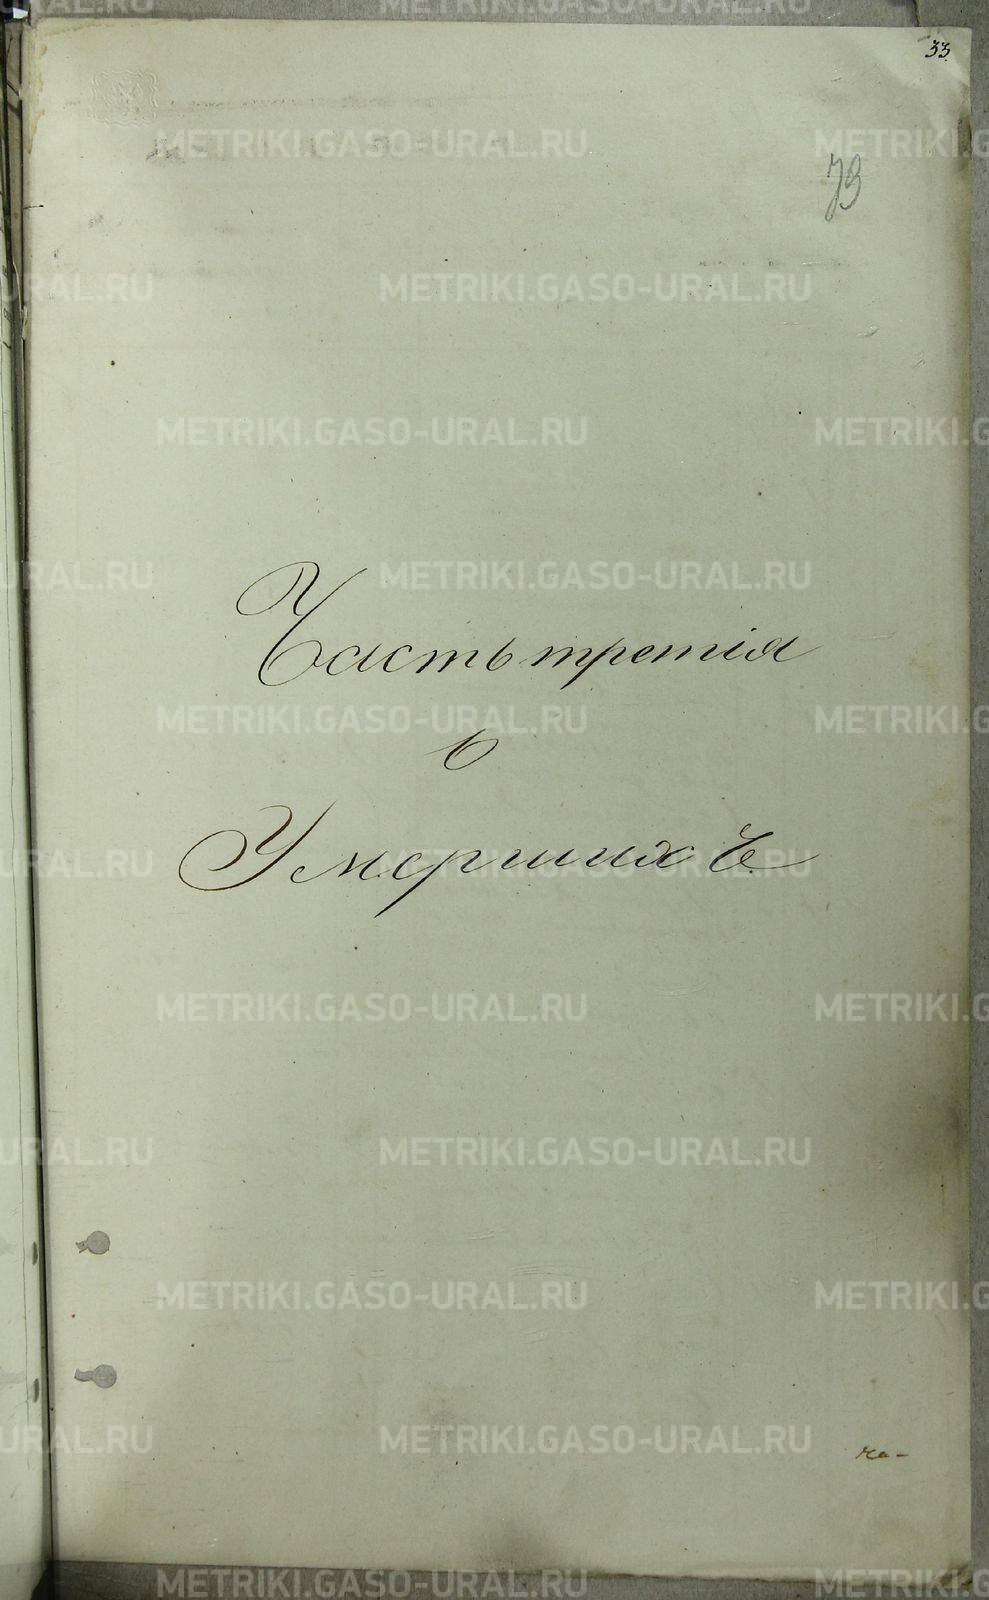 33
73
Часть третія
о
Умершихъ